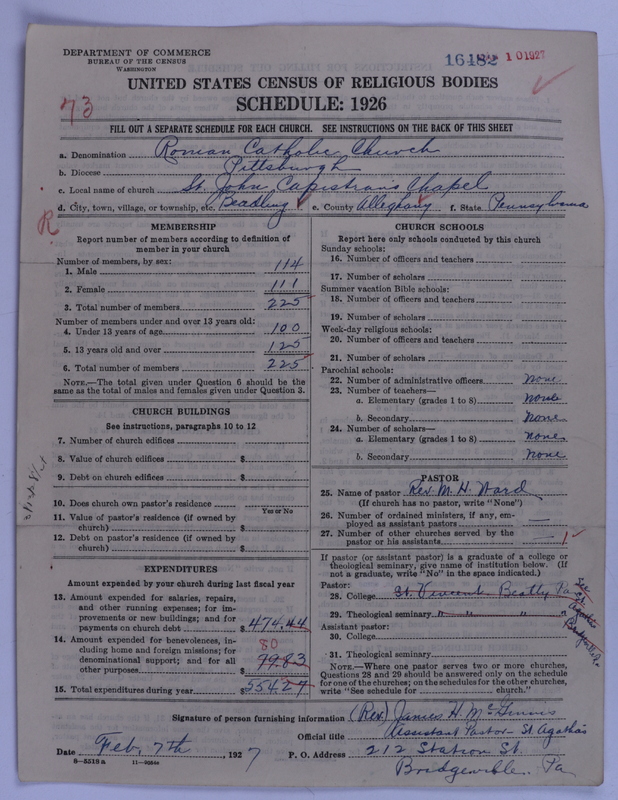 DEPARTMENT OF COMMERCE
BUREAU OF THE CENSUS
WASHINGTON
16482 101927
UNITED STATES CENSUS OF RELIGIOUS BODIES
SCHEDULE: 1926
73
FILL OUT A SEPARATE SCHEDULE FOR EACH CHURCH. SEE INSTRUCTIONS ON THE BACK OF THIS SHEET
a. Denomination Roman Catholic Church
b. Diocese Pittsburgh
c. Local name of church St. John Capistran's Chapel
d. City, town, village, or township, etc. Beadling e. County Allegheny f. State Pennsylvania
R
MEMBERSHIP
Report number of members according to definition of member in your church
Number of members, by sex:
1. Male 114
2. Female 111
3. Total number of members 225
Number of members under and over 13 years old:
4. Under 13 years of age 100
5. 13 years old and over 125
6. Total number of members 225
NOTE.—The total given under Question 6 should be the same as the total of males and females given under Question 3.
CHURCH BUILDINGS
See instructions, paragraphs 10 to 12
7. Number of church edifices
8. Value of church edifices $
9. Debt on church edifices $
10. Does church own pastor's residence
Yes or No
11. Value of pastor's residence (if owned by church) $
12. Debt on pastor's residence (if owned by church) $
EXPENDITURES
Amount expended by your church during last fiscal year
13. Amount expended for salaries, repairs, and other running expenses; for improvements or new buildings; and for payments on church debt $ 474.44
14. Amount expended for benevolences, including home and foreign missions; for denominational support; and for all other purposes $ 80 79.83
15. Total expenditures during year $ 554.27
CHURCH SCHOOLS
Report here only schools conducted by this church
Sunday schools:
16. Number of officers and teachers
17. Number of scholars
Summer vacation Bible schools:
18. Number of officers and teachers
19. Number of scholars
Week-day religious schools:
20. Number of officers and teachers
21. Number of scholars
Parochial schools:
22. Number of administrative officers none
23. Number of teachers—
a. Elementary (grades 1 to 8) none
b. Secondary none
24. Number of scholars—
a. Elementary (grades 1 to 8) none
b. Secondary none
PASTOR
25. Name of pastor Rev. M. H. Ward
(If church has no pastor, write "None")
26. Number of ordained ministers, if any, employed as assistant pastors —
27. Number of other churches served by the pastor or his assistants — 1
If pastor (or assistant pastor) is a graduate of a college or theological seminary, give name of institution below. (If not a graduate, write "No" in the space indicated.)
Pastor:
28. College St. Vincent Beatty Pa
29. Theological seminary " " " "
See St. Agatha Bridgeville
Assistant pastor:
30. College
31. Theological seminary
NOTE.—Where one pastor serves two or more churches, Questions 28 and 29 should be answered only on the schedule for one of the churches; on the schedules for the other churches, write "See schedule for church."
Signature of person furnishing information (Rev) James H. McGinnis
Official title Assistant Pastor - St. Agatha's
Date Feb. 7th, 1927 P. O. Address 212 Station St.
Bridgeville. Pa
8—5518a 11—9564a